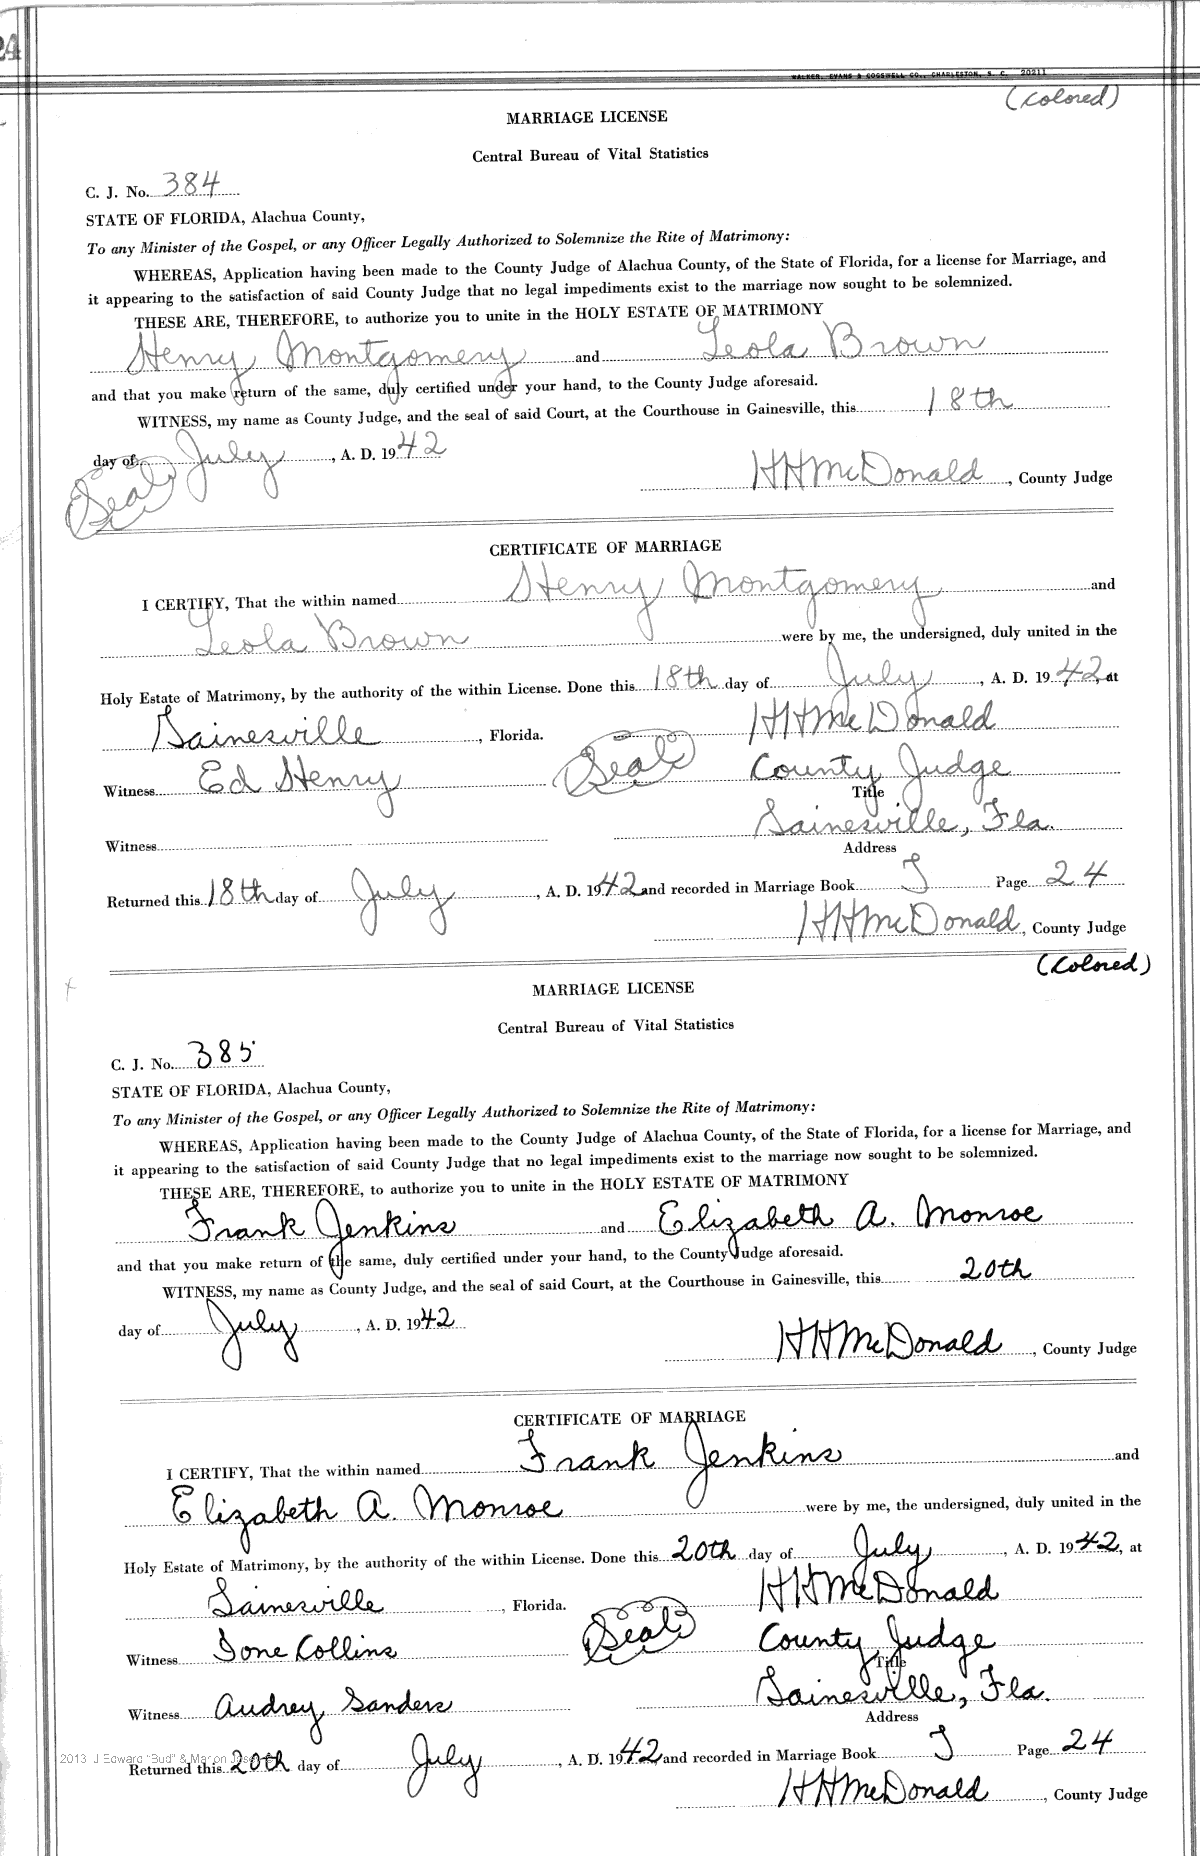 24
WALKER, EVANS & COGSWELL CO., CHARLESTON, S. C. 20211
(Colored)
MARRIAGE LICENSE
Central Bureau of Vital Statistics
C. J. No. 384
STATE OF FLORIDA, Alachua County,
To any Minister of the Gospel, or any Officer Legally Authorized to Solemnize the Rite of Matrimony:
WHEREAS, Application having been made to the County Judge of Alachua County, of the State of Florida, for a license for Marriage, and
it appearing to the satisfaction of said County Judge that no legal impediments exist to the marriage now sought to be solemnized.
THESE ARE, THEREFORE, to authorize you to unite in the HOLY ESTATE OF MATRIMONY
Henry Montgomery and Leola Brown
and that you make return of the same, duly certified under your hand, to the County Judge aforesaid.
WITNESS, my name as County Judge, and the seal of said Court, at the Courthouse in Gainesville, this 18th
day of July, A. D. 1942
(Seal) HHMcDonald, County Judge
CERTIFICATE OF MARRIAGE
I CERTIFY, That the within named Henry Montgomery and
Leola Brown were by me, the undersigned, duly united in the
Holy Estate of Matrimony, by the authority of the within License. Done this 18th day of July, A. D. 1942, at
Gainesville, Florida. HHMcDonald
Witness Ed Henry (Seal) County Judge
Title
Gainesville, Fla.
Witness Address
Returned this 18th day of July, A. D. 1942 and recorded in Marriage Book J Page 24
HHMcDonald, County Judge
(Colored)
x
MARRIAGE LICENSE
Central Bureau of Vital Statistics
C. J. No. 385
STATE OF FLORIDA, Alachua County,
To any Minister of the Gospel, or any Officer Legally Authorized to Solemnize the Rite of Matrimony:
WHEREAS, Application having been made to the County Judge of Alachua County, of the State of Florida, for a license for Marriage, and
it appearing to the satisfaction of said County Judge that no legal impediments exist to the marriage now sought to be solemnized.
THESE ARE, THEREFORE, to authorize you to unite in the HOLY ESTATE OF MATRIMONY
Frank Jenkins and Elizabeth A. Monroe
and that you make return of the same, duly certified under your hand, to the County Judge aforesaid.
WITNESS, my name as County Judge, and the seal of said Court, at the Courthouse in Gainesville, this 20th
day of July, A. D. 1942
HHMcDonald, County Judge
CERTIFICATE OF MARRIAGE
I CERTIFY, That the within named Frank Jenkins and
Elizabeth A. Monroe were by me, the undersigned, duly united in the
Holy Estate of Matrimony, by the authority of the within License. Done this 20th day of July, A. D. 1942, at
Gainesville, Florida. HHMcDonald
Witness Ione Collins (Seal) County Judge
Title
Witness Audrey Sanders Gainesville, Fla.
Address
2013 J Edward "Bud" & Marion
Returned this 20th day of July, A. D. 1942 and recorded in Marriage Book J Page 24
HHMcDonald, County Judge